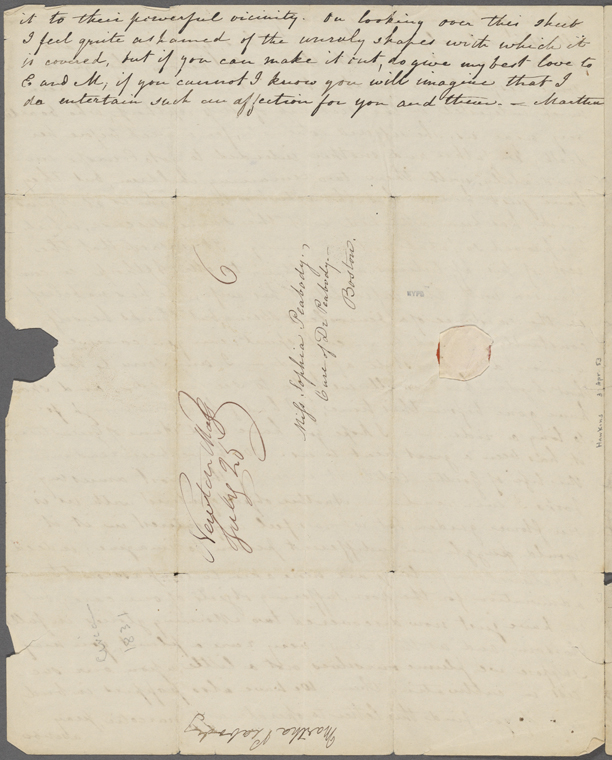 it to their powerful vicinity. On looking over this sheet
I feel quite ashamed of the unruly shapes with which it
is covered, but if you can make it out, do give my best love to
E and M, if you cannot I know you will imagine that I
do entertain such an affection for you and them. – Martha
6
Miss Sophia Peabody.
Care of Dr Peabody.
Boston.
Newton Mass
July 25
NYPL
Hawkins
Apr 53
1831
Martha Peabody